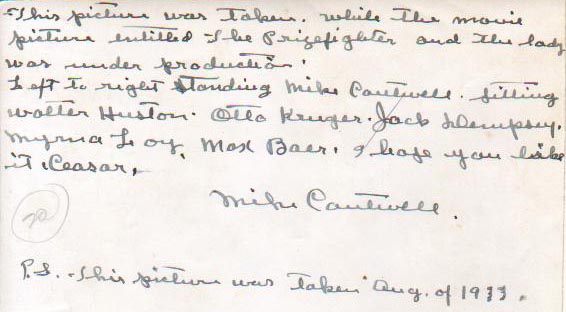 This picture was taken. while the movie
picture entitled The Prizefighter and the lady
was under production.
Left to right standing Mike Cantwell. sitting
walter Huston. Otto Kruger. Jack Dempsey.
Myrna Loy. Max Baer. I hope you like
it Ceasar.
Mike Cantwell.
P.S. This picture was taken Aug. of 1933.